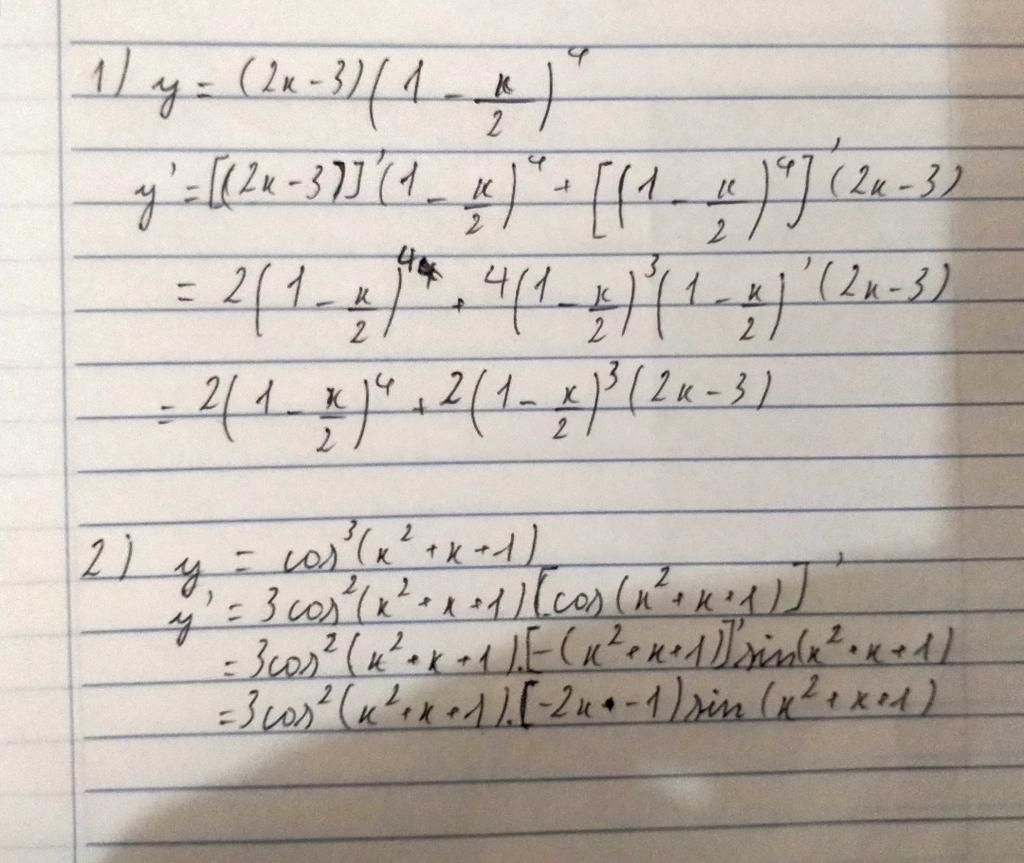 1) y = (2x-3)(1 - x/2)^4
y' = [(2x-3)]'(1 - x/2)^4 + [(1 - x/2)^4]'(2x-3)
= 2(1 - x/2)^4 + 4(1 - x/2)^3(1 - x/2)'(2x-3)
= 2(1 - x/2)^4 + 2(1 - x/2)^3(2x-3)
2) y = cos^3(x^2+x+1)
y' = 3cos^2(x^2+x+1)[cos(x^2+x+1)]'
= 3cos^2(x^2+x+1).[-(x^2+x+1)]'sin(x^2+x+1)
= 3cos^2(x^2+x+1).[-2x-1)sin(x^2+x+1)